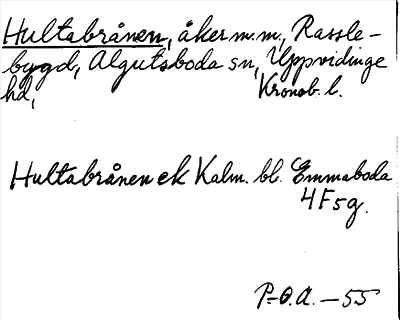 Hultabrånen, åker m.m., Rassle-
bygd, Algutsboda sn, Uppvidinge
hd, Kronob. l.
Hultabrånen ek Kalm. bl. Emmaboda
4F5g.
P-O.A. -55